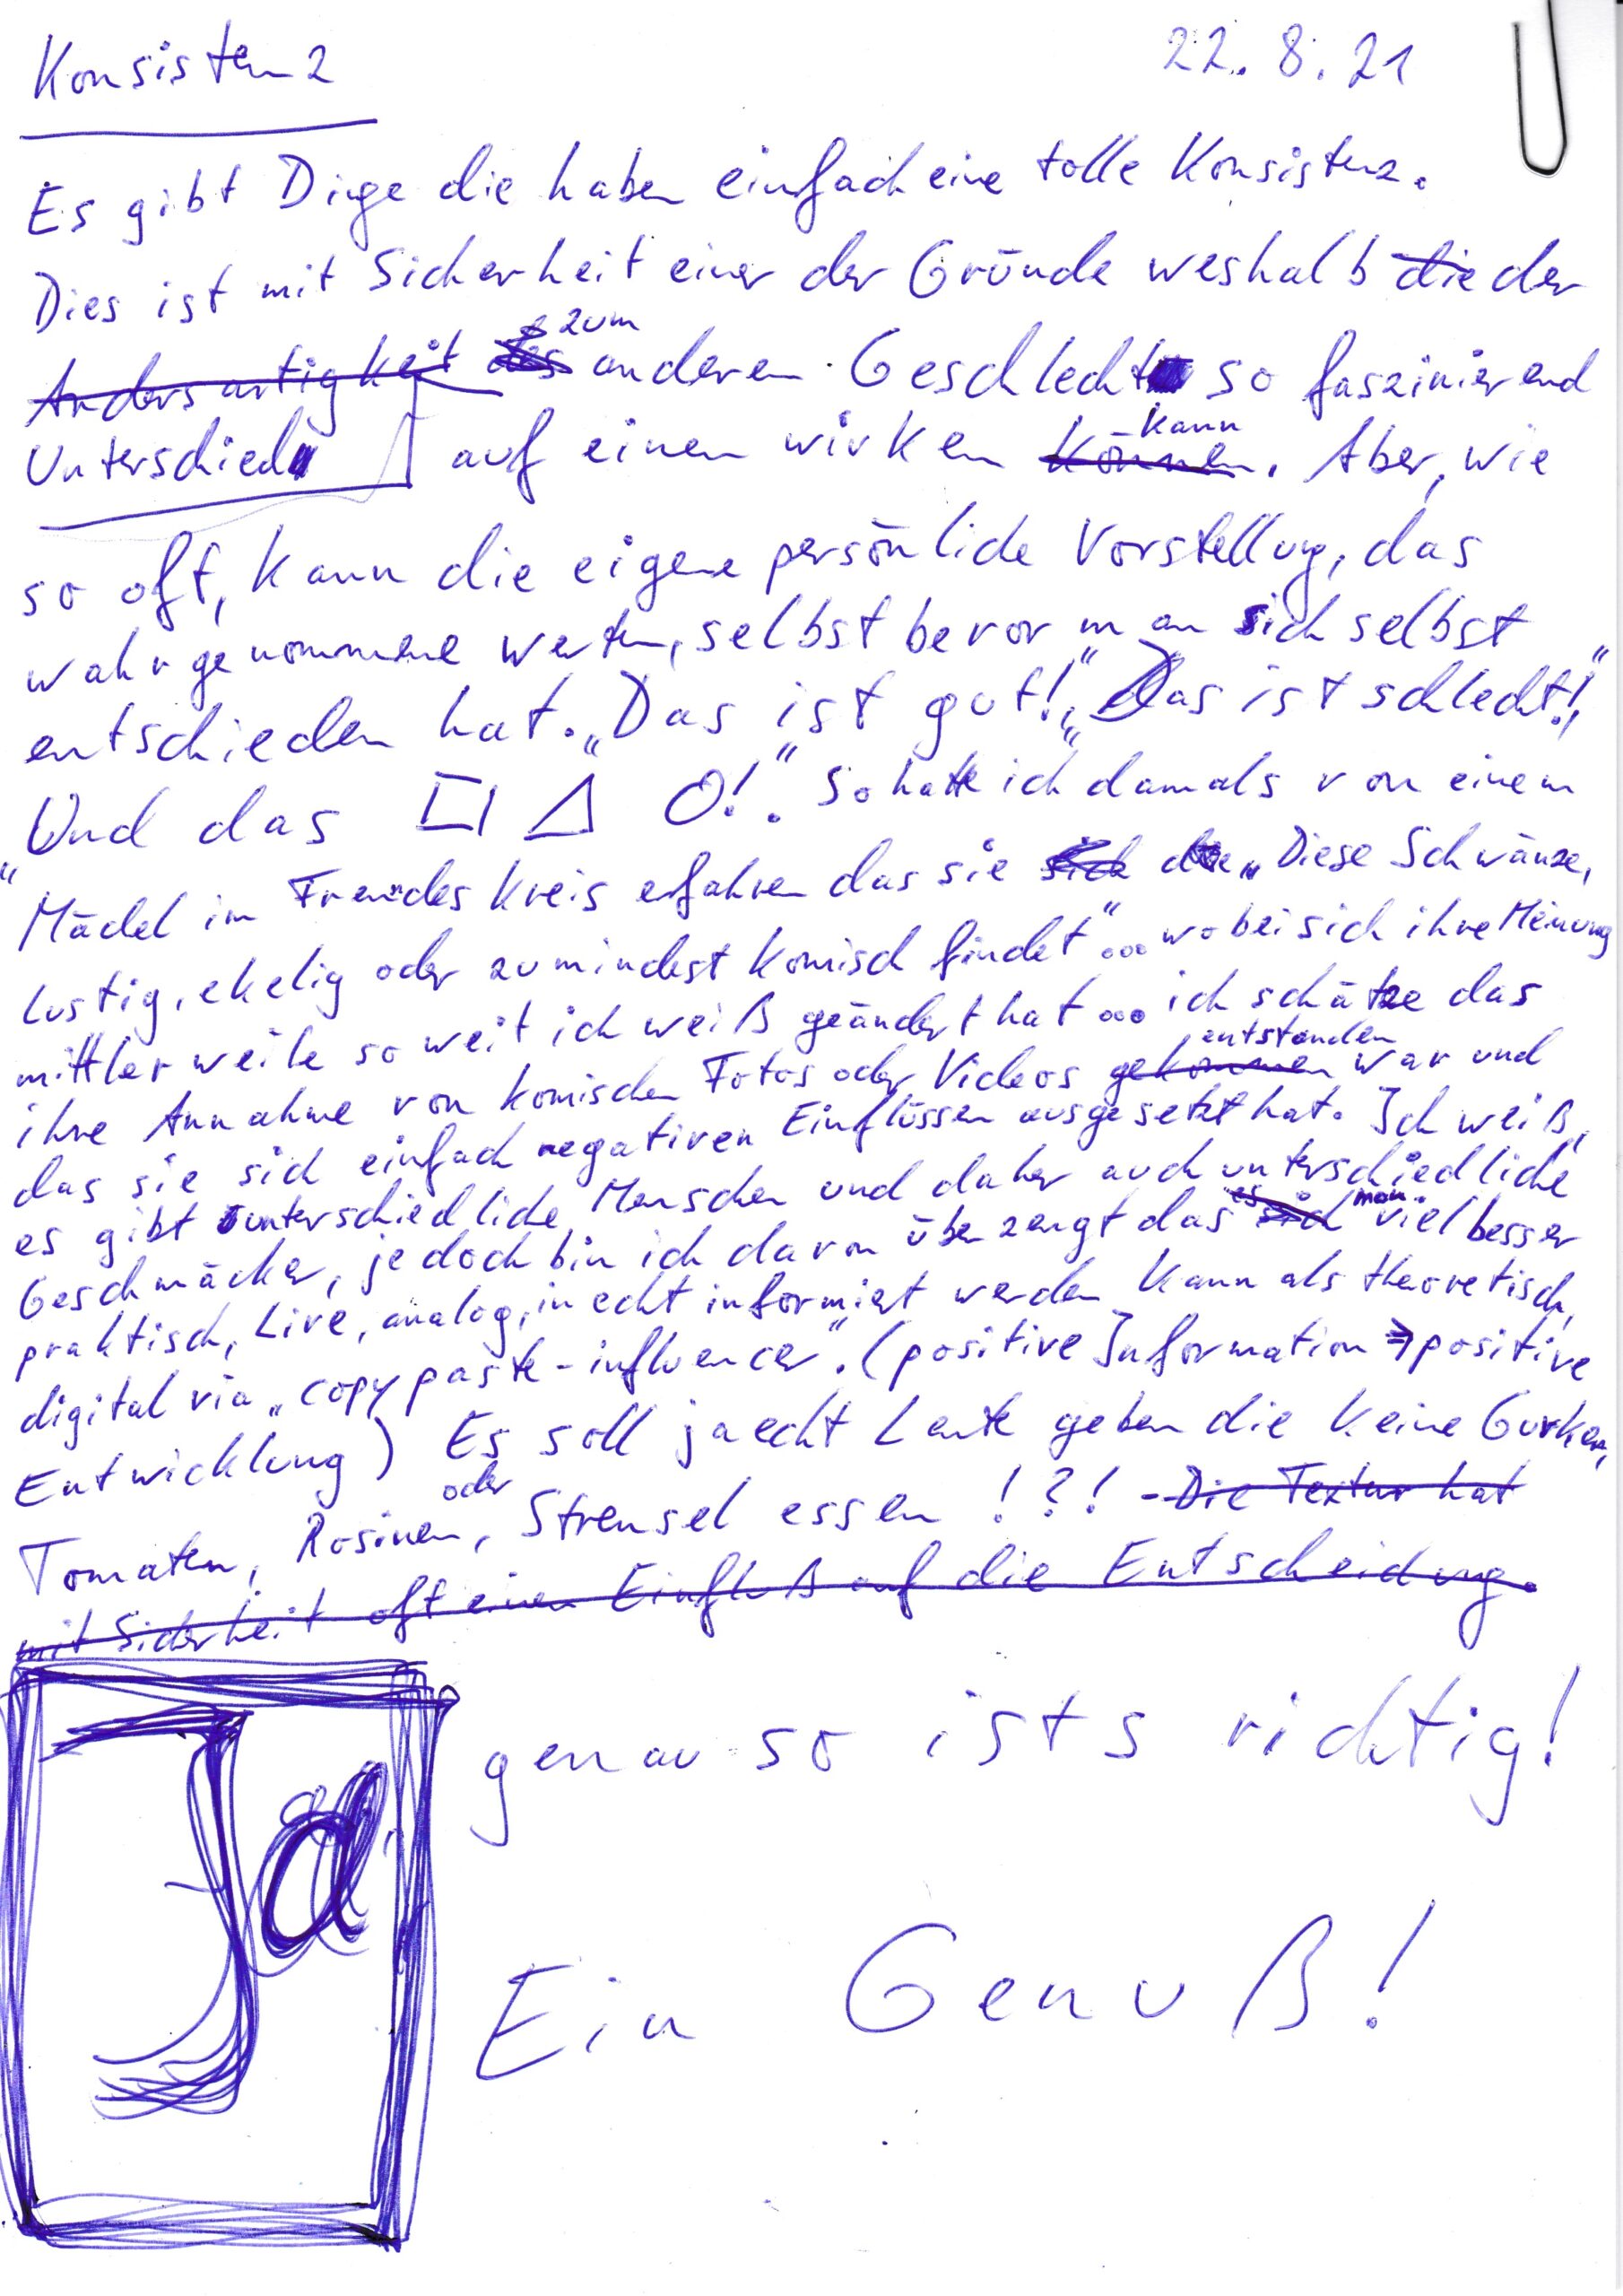 Konsistenz 22.8.21
Es gibt Dinge die haben einfach eine tolle Konsistenz.
Dies ist mit Sicherheit einer der Gründe weshalb die der
Andersartigkeit des zum anderen Geschlecht so faszinierend
Unterschied auf einen wirken können kann. Aber, wie
so oft, kann die eigene persönliche Vorstellung, das
wahrgenommene werten, selbst bevor man sich selbst
entschieden hat. „Das ist gut!" „Das ist schlecht!"
„Und das □ △ O!." So hatte ich damals von einem
Mädel im Freundeskreis erfahren das sie sich die „Diese Schwänze,
lustig, ekelig oder zumindest komisch findet"... wobei sich ihre Meinung
mittlerweile so weit ich weiß geändert hat... ich schätze das
ihre Annahme von komischen Fotos oder Videos gekommen entstanden war und
das sie sich einfach negativen Einflüssen ausgesetzt hat. Ich weiß,
es gibt unterschiedliche Menschen und daher auch unterschiedliche
Geschmäcker, jedoch bin ich davon überzeugt das es sich man viel besser
praktisch, Live, analog, in echt informiert werden kann als theoretisch,
digital via „copy paste-influencer". (positive Information ⇒ positive
Entwicklung) Es soll ja echt Leute geben die keine Gurken,
Tomaten, Rosinen, oder Streusel essen !?! - Die Textur hat
mit Sicherheit oft einen Einfluß auf die Entscheidung.
Ja genau so ists richtig!
Ein Genuß!